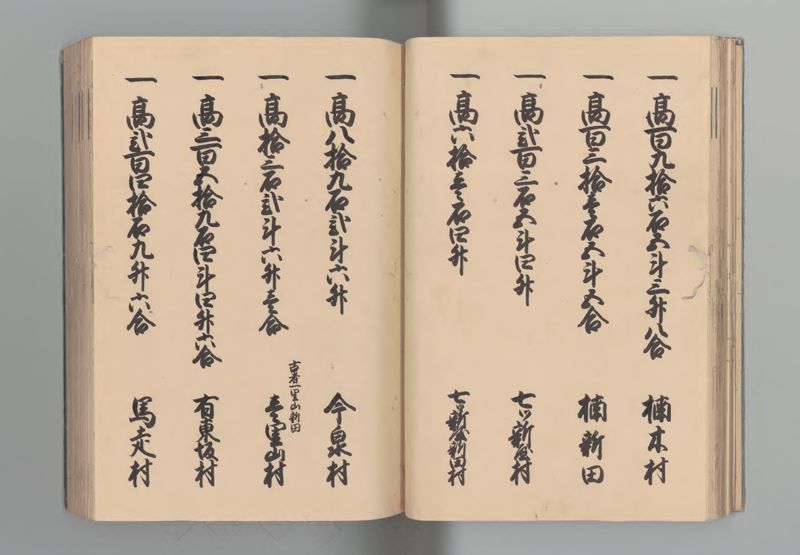 一高百九拾六石五斗三升八合 楠木村
一高百三拾壱石五斗五合 楠新田
一高弐百三石五斗四升 七ツ新屋村
一高六拾壱石四升 七ツ新屋新田村
一高八拾九石弐斗六升 今泉村
一高拾三石弐斗六升壱合 古者一里山新田 壱里山村
一高三百五拾九石四斗四升六合 有東坂村
一高弐百四拾石九升六合 馬走村